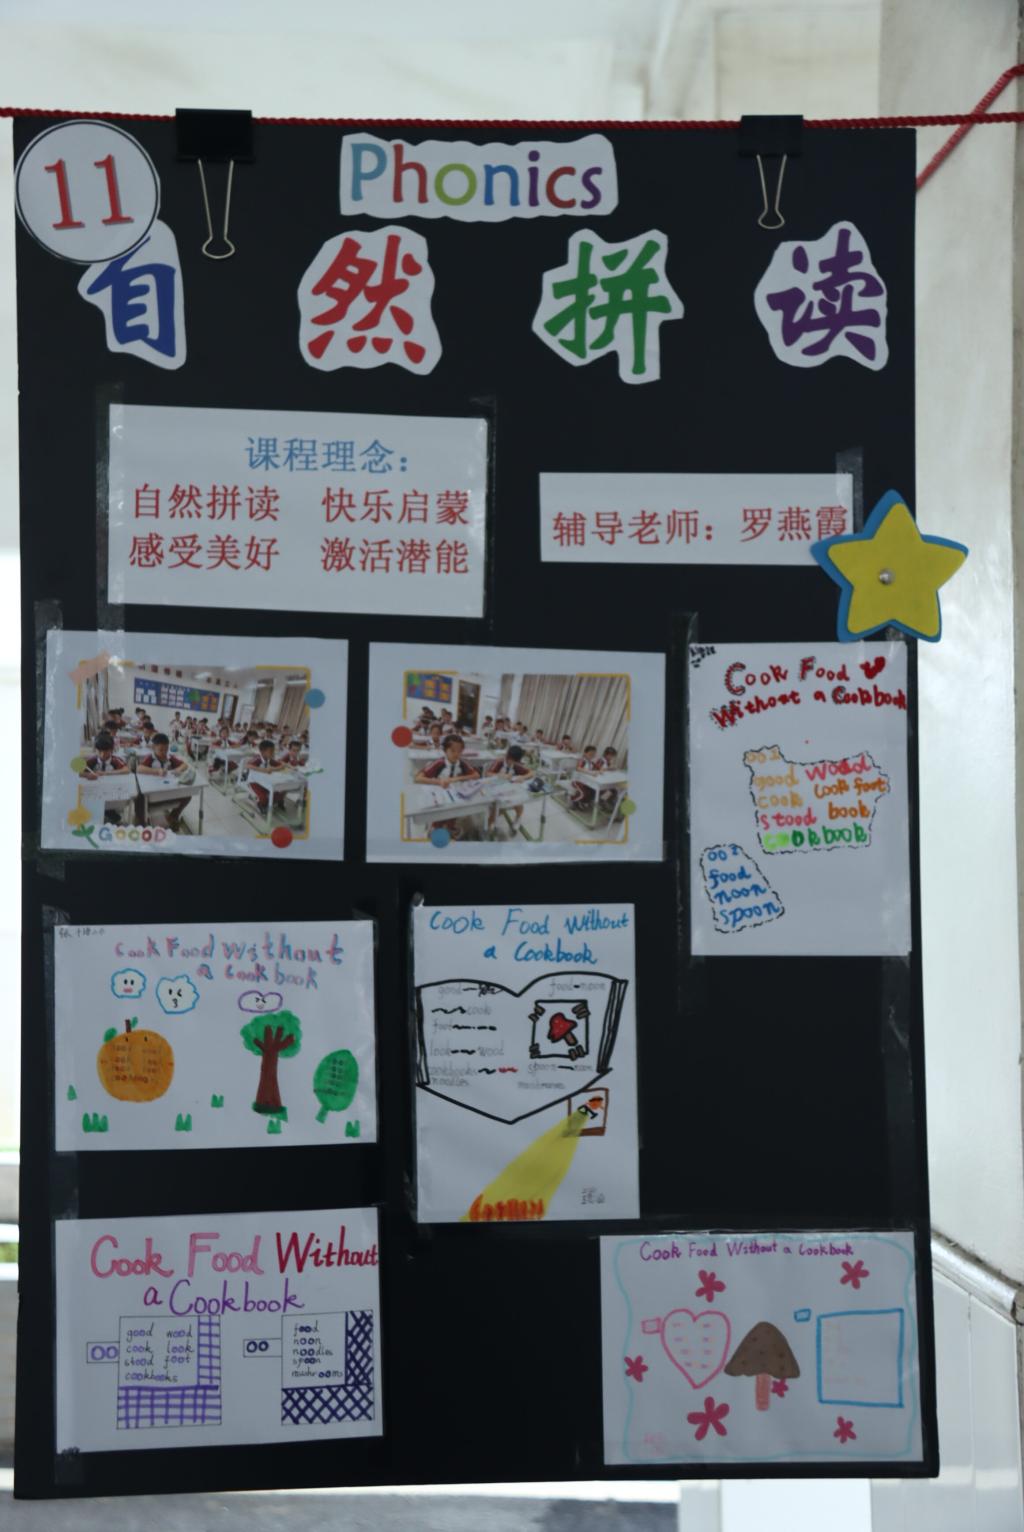 11
Phonics
自然拼读
课程理念：
自然拼读 快乐启蒙
感受美好 激活潜能
辅导老师：罗燕霞
GOOOD
Cook Food
Without a Cookbook
good wood
cook look foot
stood book
cookbook
food
noon
spoon
Cook Food Without
a Cookbook
Cook Food Without
a Cookbook
good
food noon
cook
foot
look wood
cookbooks
spoon
noodles
mushrooms
Cook Food Without
a Cookbook
oo
good wood
cook look
stood foot
cookbooks
oo
food
noon
noodles
spoon
mushrooms
Cook Food Without a Cookbook